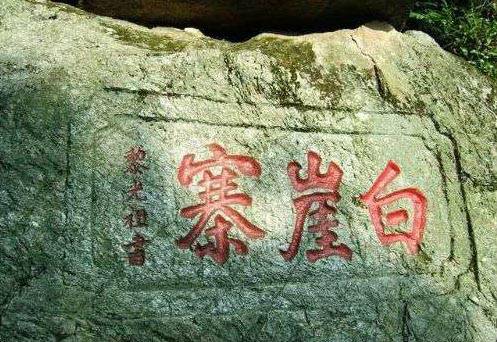 白崖寨
黎光祖書